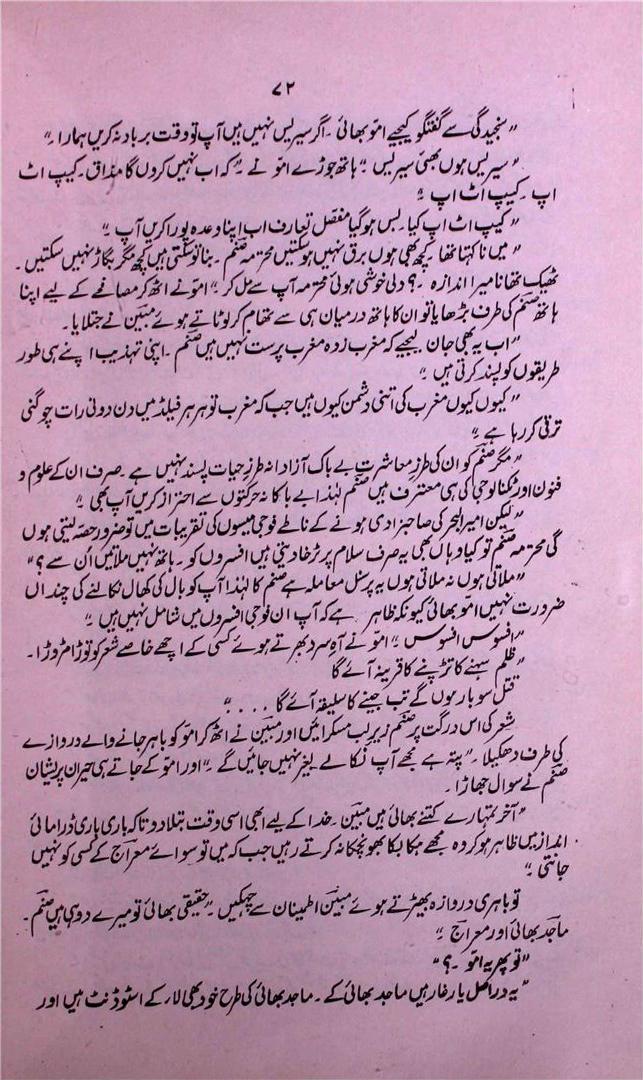 ۷۲
"سنجیدگی سے گفتگو کیجیے امّو بھائی ۔ اگر سیریس نہیں ہیں آپ تو وقت برباد نہ کریں ہمارا ۔"
"سیریس ہوں بھئی سیریس ۔" ہاتھ جوڑے امّو نے ۔" کہ اب نہیں کروں گا مذاق ۔ کیپ اٹ
اپ ۔ کیپ اٹ اپ ۔"
"کیپ اٹ اپ کیا ۔ بس ہو گیا مفصل تعارف اب اپنا وعدہ پورا کریں آپ ۔"
"میں نا کہتا تھا ۔ کچھ بھی ہوں برق نہیں ہو سکتیں محترمہ صنم ۔ بنا تو سکتی ہیں کچھ مگر بگاڑ نہیں سکتیں ۔
ٹھیک تھا نا میرا اندازہ ۔؟ دلی خوشی ہوئی محترمہ آپ سے مل کر ۔" امّو نے اٹھ کر مصافحے کے لیے اپنا
ہاتھ صنم کی طرف بڑھایا تو ان کا ہاتھ درمیان ہی سے تھام کر لوٹاتے ہوئے مبین نے جتلایا ۔
"اب یہ بھی جان لیجیے کہ مغرب زدہ مغرب پرست نہیں ہیں صنم ۔ اپنی تہذیب اپنے ہی طور
طریقوں کو پسند کرتی ہیں ۔"
"کیوں کیوں مغرب کی اتنی دشمن کیوں ہیں جب کہ مغرب تو ہر ہر فیلڈ میں دن دونی رات چوگنی
ترقی کر رہا ہے ۔"
"مگر صنم کو ان کی طرز معاشرت بے باک آزادانہ طرز حیات پسند نہیں ہے ۔ صرف ان کے علوم و
فنون اور ٹکنالوجی کی ہی معترف ہیں صنم لہٰذا بے باکانہ حرکتوں سے احتراز کریں آپ بھی ۔"
"لیکن امیر البحر کی صاحبزادی ہونے کے ناطے فوجی میسوں کی تقریبات میں تو ضرور حصہ لیتی ہوں
گی محترمہ صنم تو کیا وہاں بھی یہ صرف سلام پر ٹرخا دیتی ہیں افسروں کو ۔ ہاتھ نہیں ملاتیں اُن سے ؟"
"ملاتی ہوں نہ ملاتی ہوں یہ پرسنل معاملہ ہے صنم کا لہٰذا آپ کو بال کی کھال نکالنے کی چنداں
ضرورت نہیں امّو بھائی کیونکہ ظاہر ہے کہ آپ ان فوجی افسروں میں شامل نہیں ہیں ۔"
"افسوس افسوس ۔" امّو نے آہِ سرد بھرتے ہوئے کسی کے اچھے خاصے شعر کو توڑا مروڑا ۔
"ظلم سہنے کا تڑپنے کا قرینہ آئے گا
قتل سو بار ہوں گے تب جینے کا سلیقہ آئے گا ....."
شعر کی اس درگت پر صنم زیر لب مسکرائیں اور مبین نے اٹھ کر امّو کو باہر جانے والے دروازے
کی طرف دھکیلا ۔" پتہ ہے مجھے آپ نکالے بغیر نہیں جائیں گے ۔" اور امّو کے جاتے ہی حیران پریشان
صنم نے سوال جھاڑا ۔
"آخر تمہارے کتنے بھائی ہیں مبین ۔ خدا کے لیے ابھی اسی وقت بتلا دو تا کہ باری باری ڈرامائی
انداز میں ظاہر ہو کر وہ مجھے ہکا بکا بھونچکا نہ کرتے رہیں جب کہ میں تو سوائے معراج کے کسی کو نہیں
جانتی ۔"
تو باہری دروازہ بھیڑتے ہوئے مبین اطمینان سے چہکیں ۔" حقیقی بھائی تو میرے دو ہی ہیں صنم ۔
ماجد بھائی اور معراج ۔"
"تو پھر یہ امّو ۔؟"
"یہ دراصل یار غار ہیں ماجد بھائی کے ۔ ماجد بھائی کی طرح خود بھی لا کے اسٹوڈنٹ ہیں اور